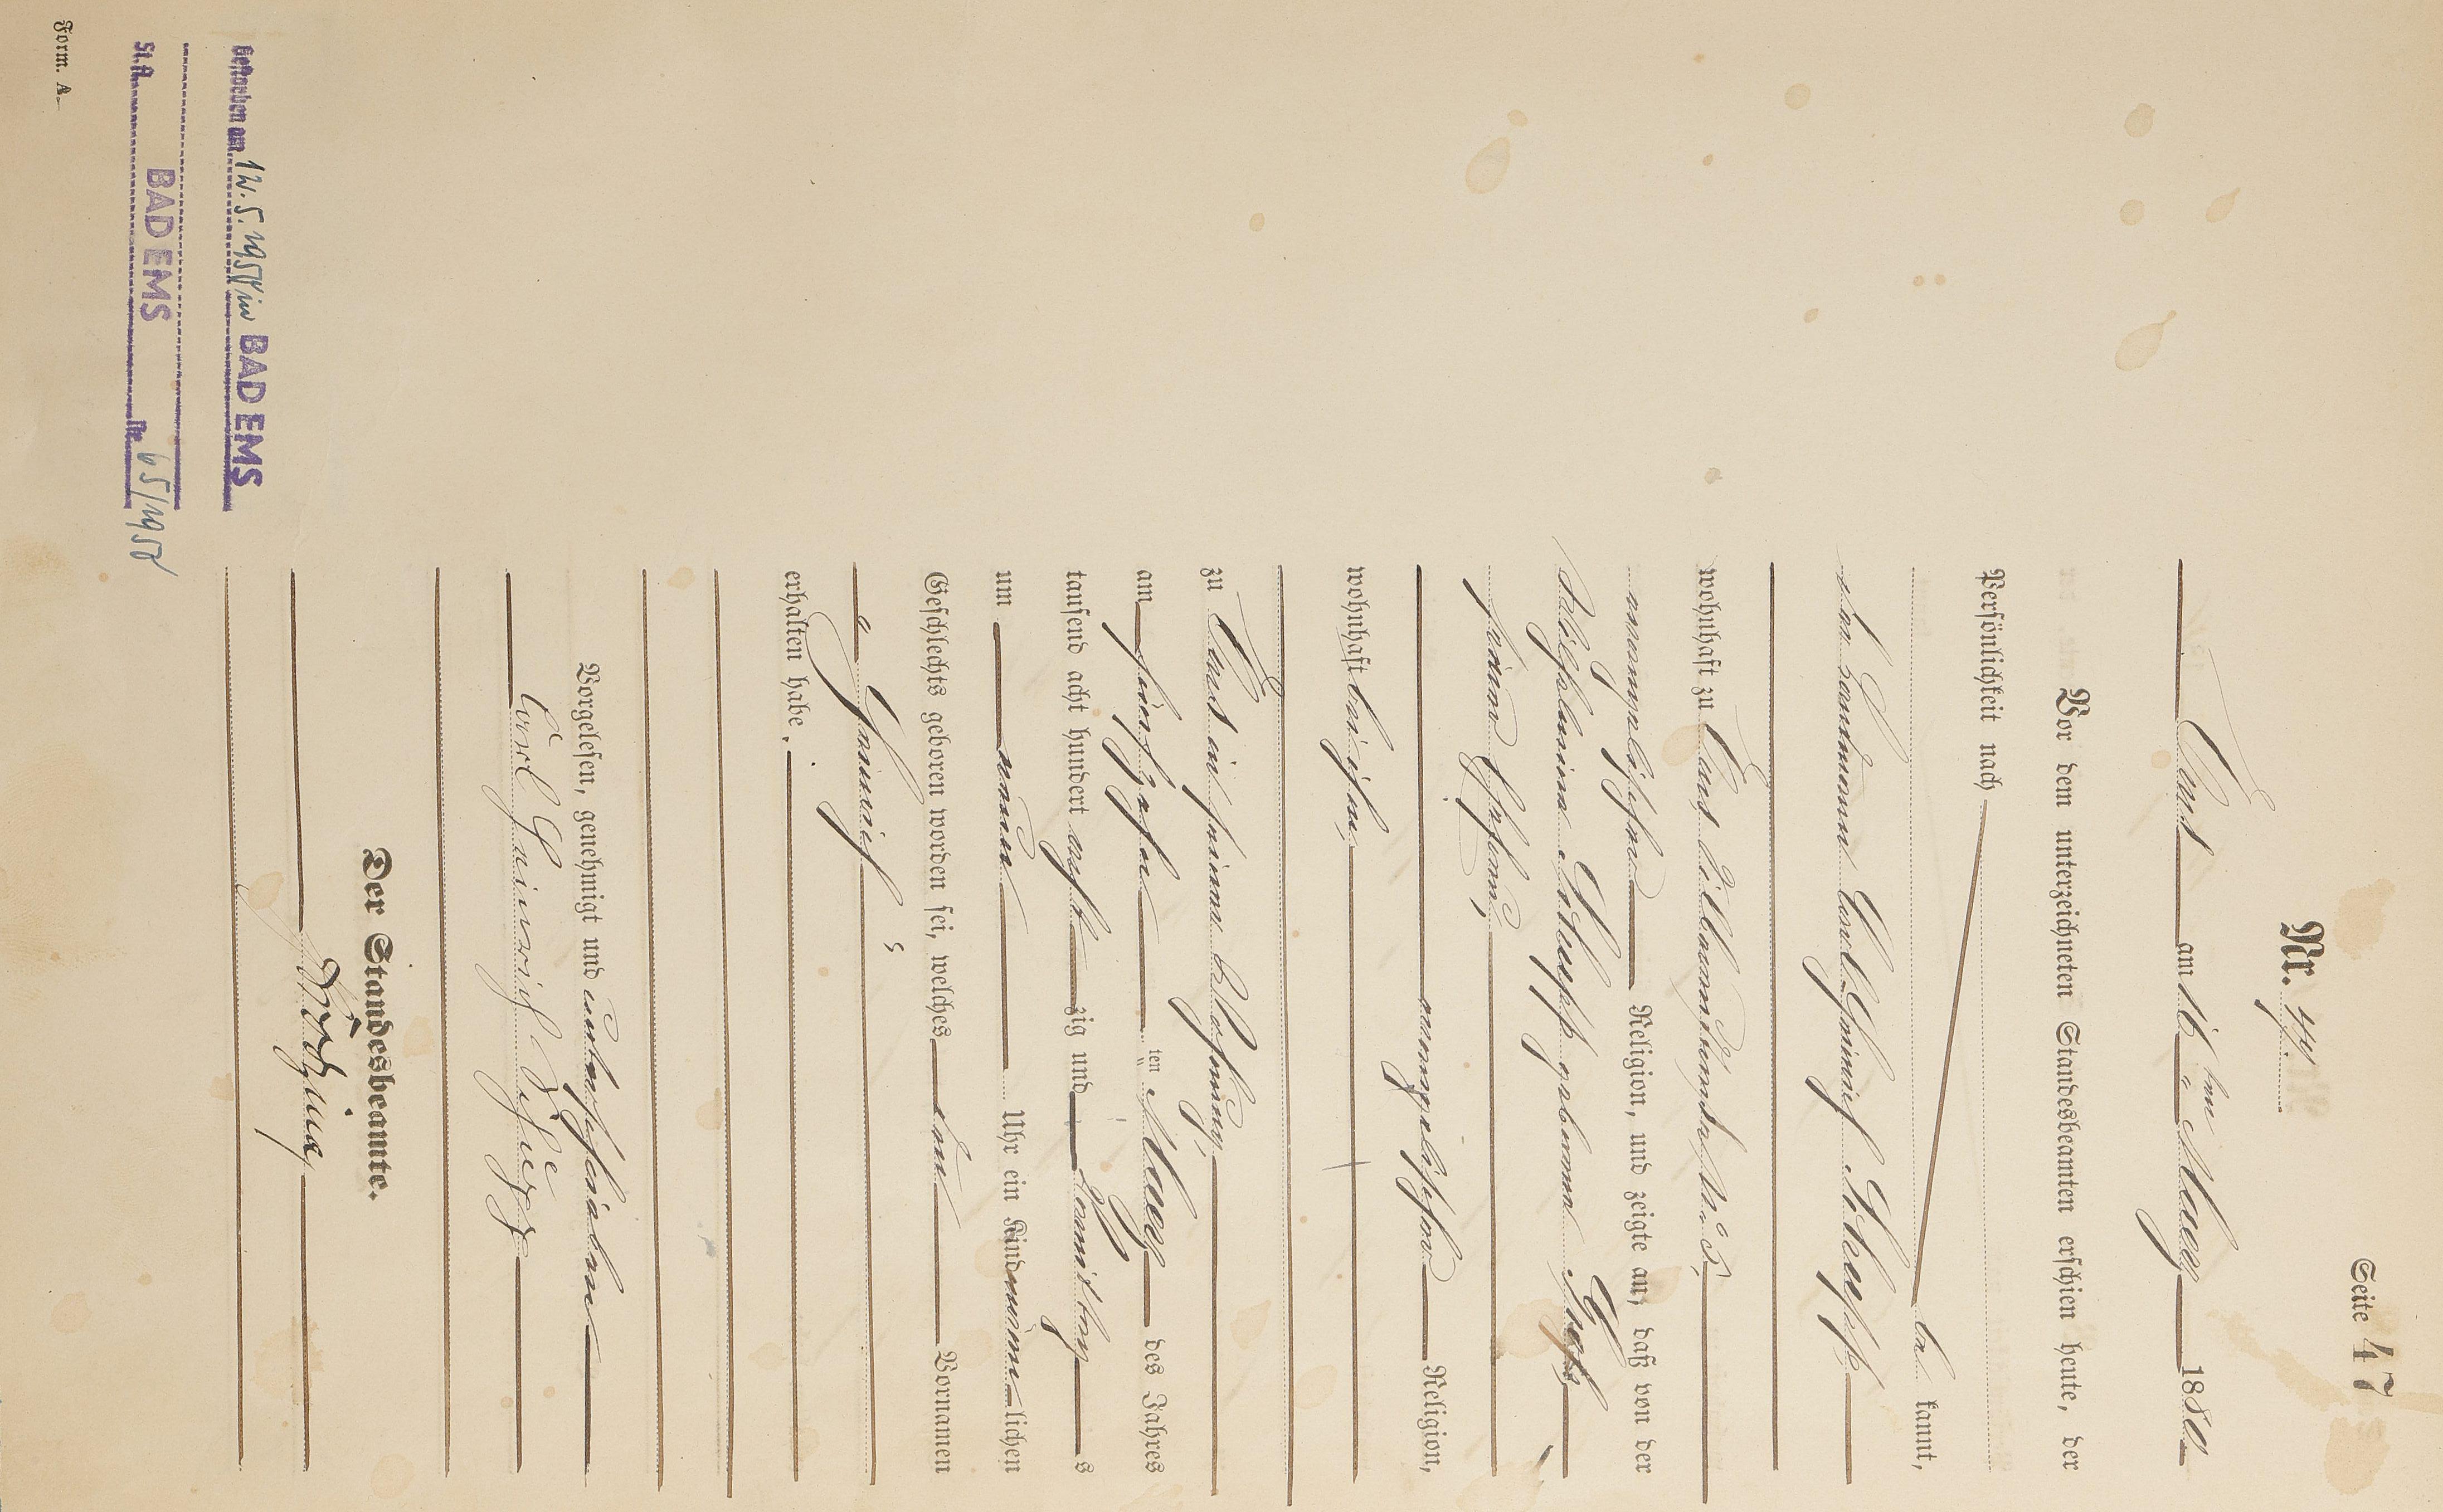 Seite 47
Nr. 47.
Ems am 16ten März 1880
Vor dem unterzeichneten Standesbeamten erschien heute, der
Persönlichkeit nach
be kannt,
der Carl Heinrich
wohnhaft zu Ems No 5,
evangelischer Religion, und zeigte an, daß von der
geborenen
seiner Ehefrau,
evangelischer Religion,
wohnhaft bei ihm,
zu Ems in seiner Wohnung,
am fünfzehn ten März des Jahres
tausend acht hundert acht zig und Vormittags
um neun Uhr ein Kind männlichen
Geschlechts geboren worden sei, welches den Vornamen
Heinrich
erhalten habe.
Vorgelesen, genehmigt und unterschrieben
Carl Heinrich
Der Standesbeamte.
Gestorben am 12.5.1958 in BAD EMS
St.A. BAD EMS Nr. 65/1958
Form. A.